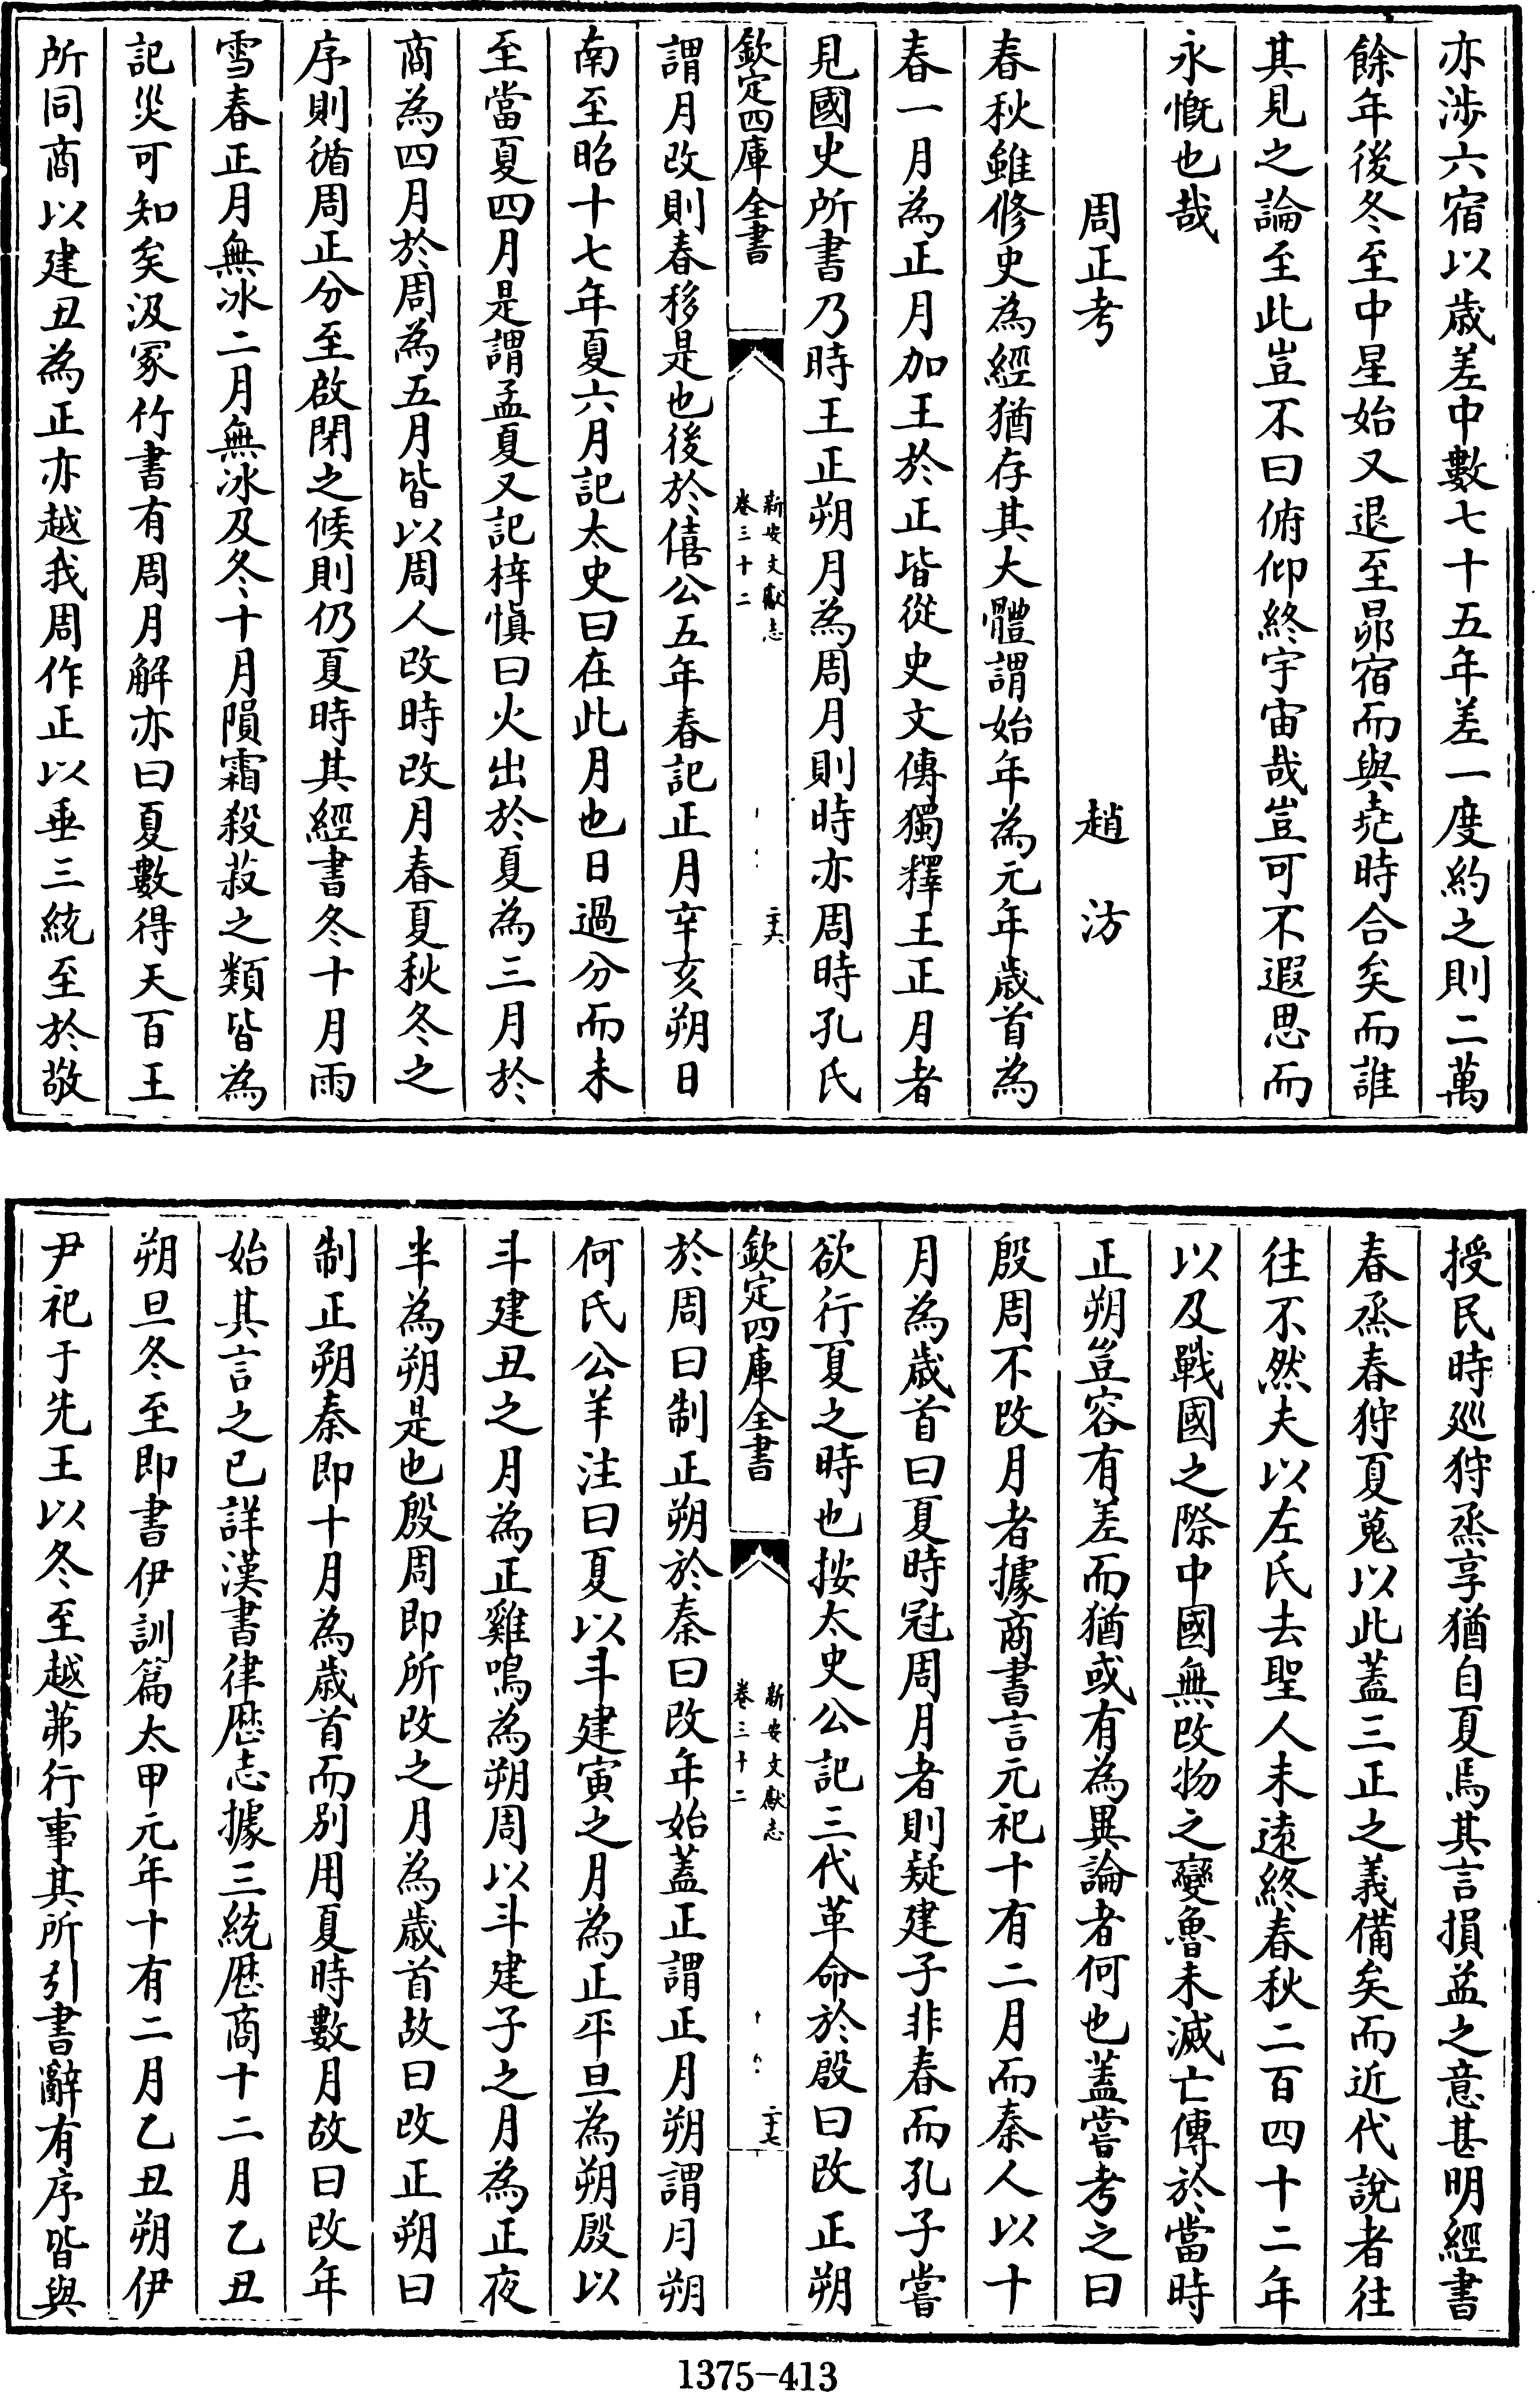 亦渉六宿以歳差中數七十五年差一度約之則二萬
餘年後冬至中星始又退至昴宿而與堯時合矣而誰
其見之論至此豈不曰俯仰終宇宙哉豈可不遐思而
永慨也哉
周正考　趙汸
春秋雖修史為經猶存其大體謂始年為元年歳首為
春一月為正月加王於正皆從史文傳獨釋王正月者
見國史所書乃時王正朔月為周月則時亦周時孔氏
欽定四庫全書
新安文獻志
卷三十二
二十六
謂月改則春移是也後於僖公五年春記正月辛亥朔日
南至昭十七年夏六月記太史曰在此月也日過分而未
至當夏四月是謂孟夏又記梓慎曰火出於夏為三月於
商為四月於周為五月皆以周人改時改月春夏秋冬之
序則循周正分至啟閉之候則仍夏時其經書冬十月雨
雪春正月無冰二月無冰及冬十月隕霜殺菽之類皆為
記災可知矣汲冢竹書有周月解亦曰夏數得天百王
所同商以建丑為正亦越我周作正以垂三統至於敬
授民時廵狩烝享猶自夏焉其言損益之意甚明經書
春烝春狩夏蒐以此蓋三正之義備矣而近代說者往
往不然夫以左氏去聖人未遠終春秋二百四十二年
以及戰國之際中國無改物之變魯未滅亡傳於當時
正朔豈容有差而猶或有為異論者何也蓋嘗考之曰
殷周不改月者據商書言元祀十有二月而秦人以十
月為歳首曰夏時冠周月者則疑建子非春而孔子嘗
欲行夏之時也按太史公記三代革命於殷曰改正朔
欽定四庫全書
新安文獻志
卷三十二
二十七
於周曰制正朔於秦曰改年始蓋正謂正月朔謂月朔
何氏公羊注曰夏以斗建寅之月為正平旦為朔殷以
斗建丑之月為正雞鳴為朔周以斗建子之月為正夜
半為朔是也殷周即所改之月為歳首故曰改正朔曰
制正朔秦即十月為歳首而别用夏時數月故曰改年
始其言之已詳漢書律厯志據三統厯商十二月乙丑
朔旦冬至即書伊訓篇太甲元年十有二月乙丑朔伊
尹祀于先王以冬至越茀行事其所引書辭有序皆與
1375-413